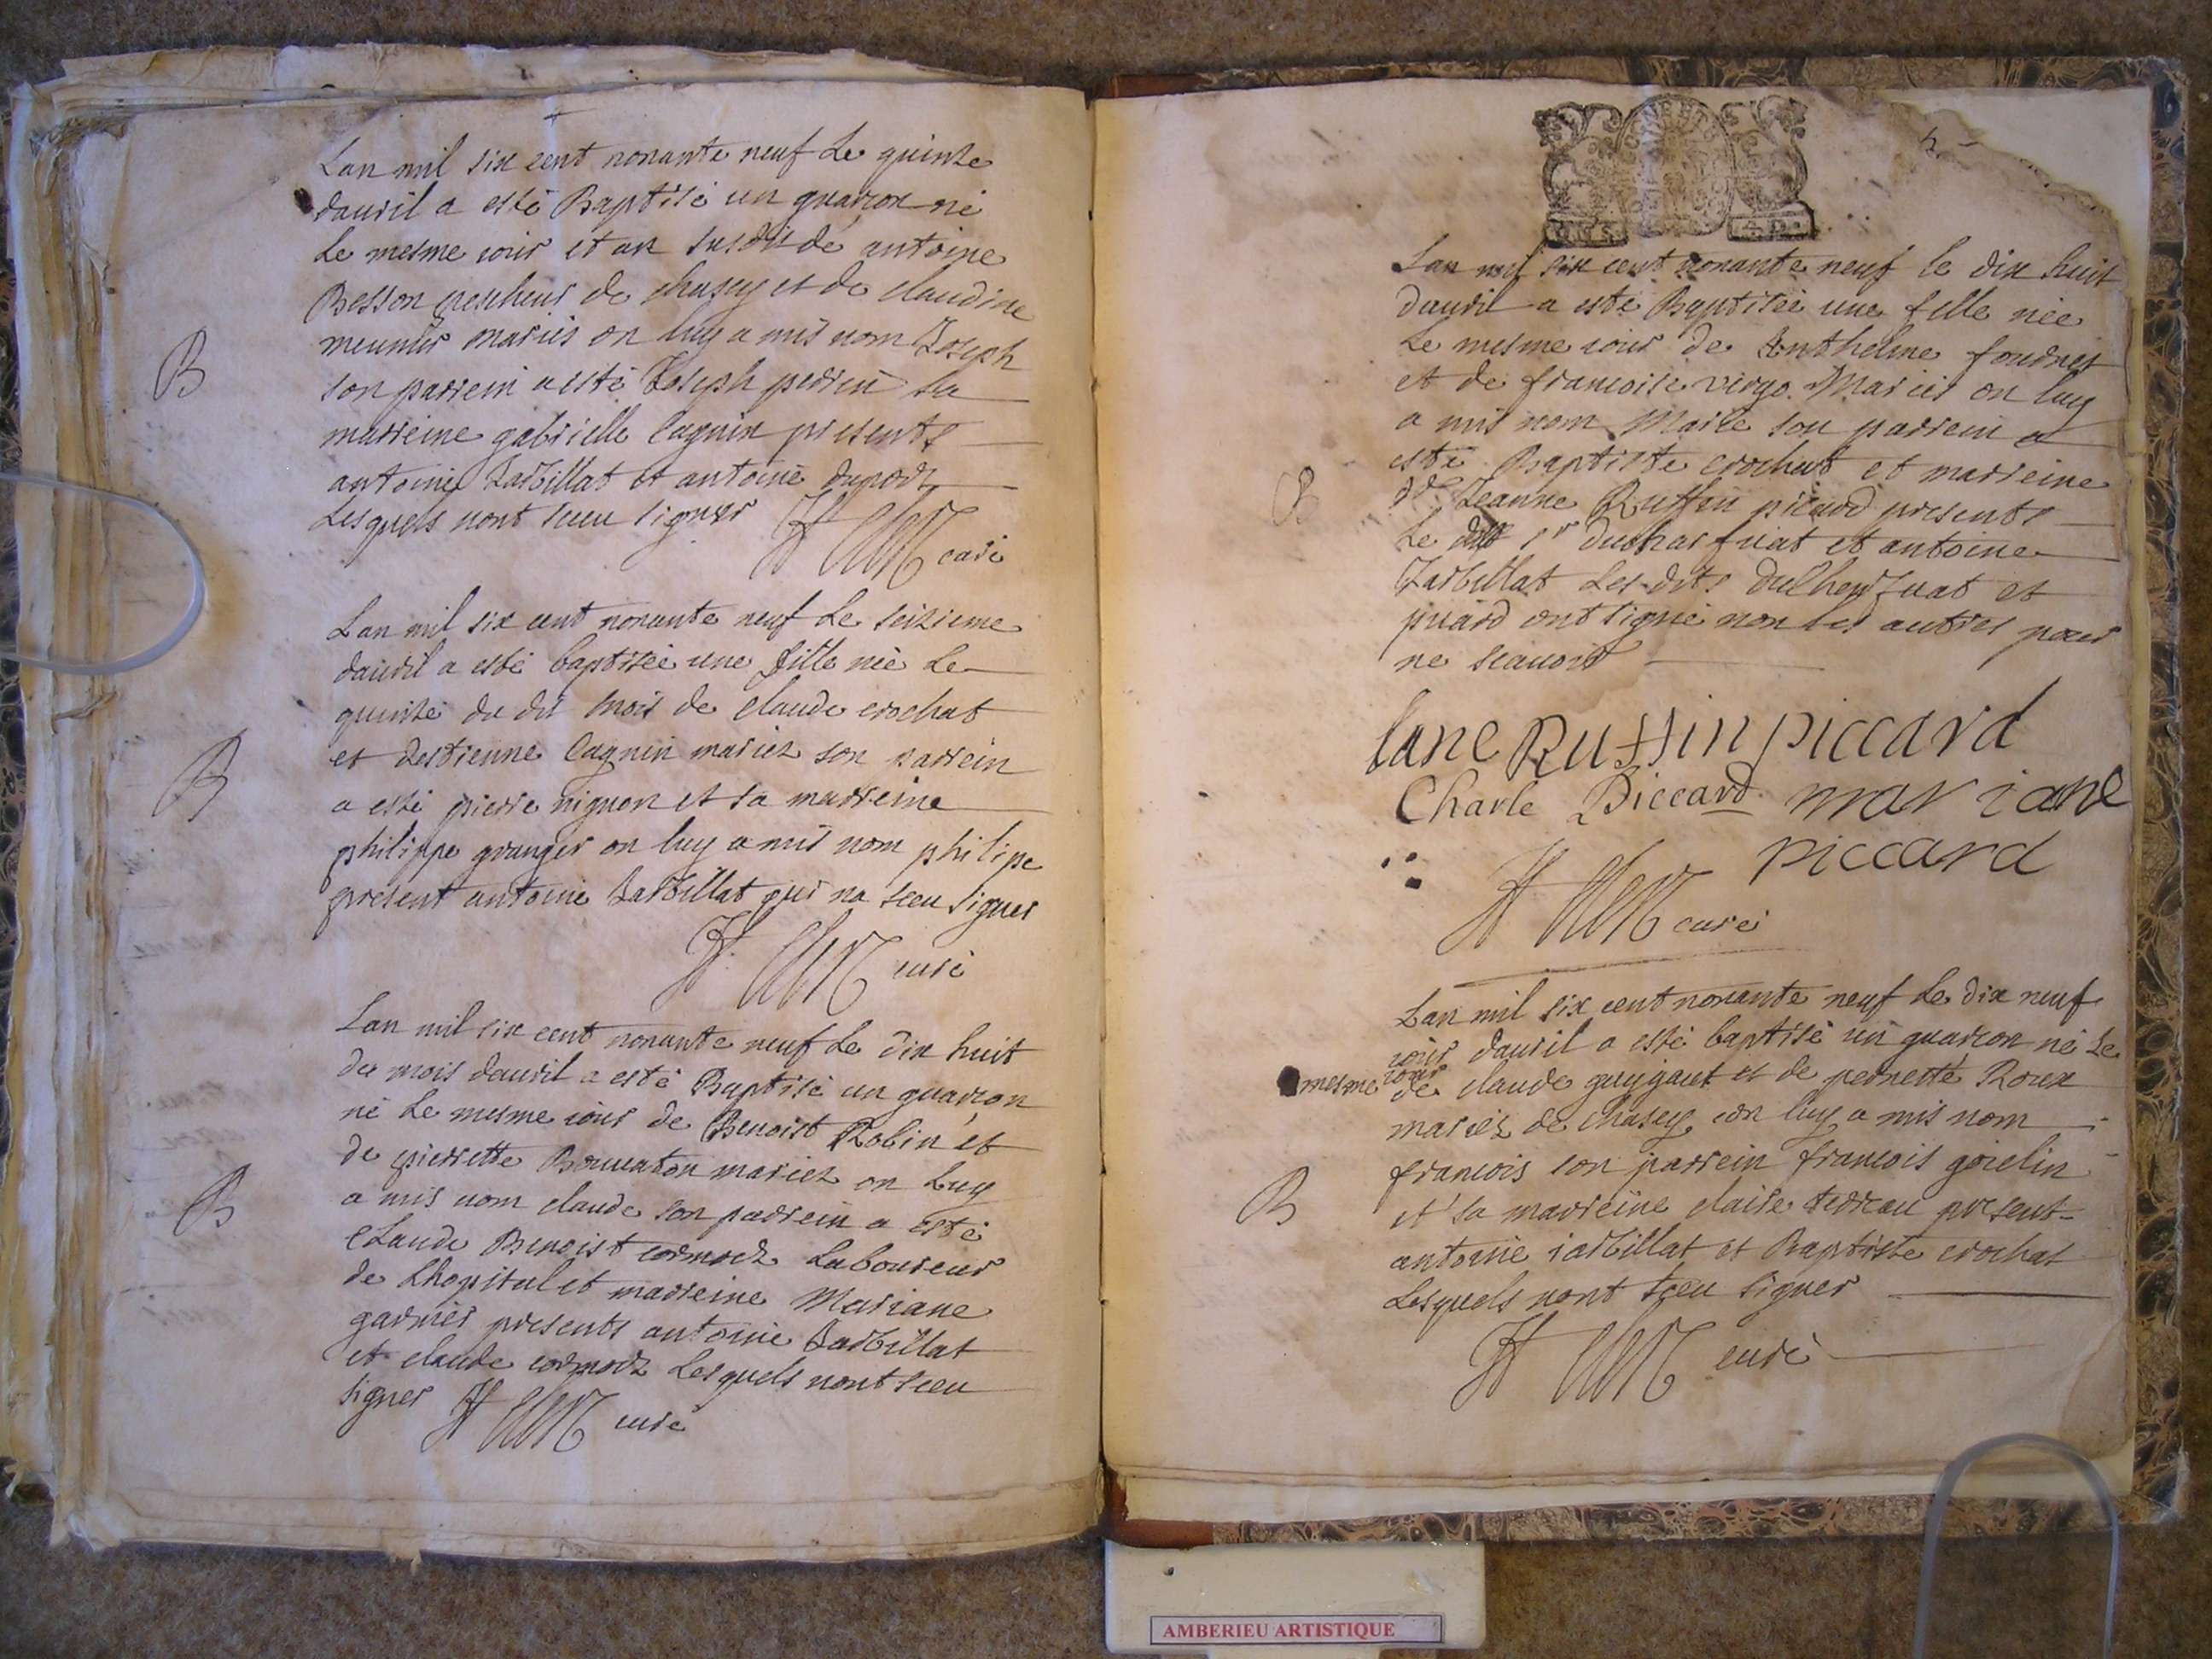 Lan mil six cent nonante neuf Le quinze
dauril a esté Baptisé un guarcon né
Le mesme iour et an susdit de antoine
Besson pescheur de chasey et de claudine
meunier mariés on luy a mis nom Joseph
son parrein a esté Joseph perrin sa
marreine gabrielle Cagnin presents
antoine Jarbillat et antoine duport
Lesquels nont sceu signer
curé
B
Lan mil six cent nonante neuf Le seizieme
dauril a esté baptisée une fille née Le
quinze du dit mois de claude crochat
et destienne Cagnin mariez son parrein
a esté pierre mignon et sa marreine
philippe granger on luy a mis nom philipe
present antoine Jarbillat qui na sceu signer
curé
B
Lan mil six cent nonante neuf Le dix huit
du mois dauril a esté Baptisé un guarcon
né Le mesme iour de Benoist Robin et
de pierrette mariez on Luy
a mis nom claude son parrein a esté
claude Benoist cormorz Laboureur
de Lhopital et marreine Mariane
garnier presents antoine Jarbillat
et claude cormorz Lesquels nont sceu
signer curé
B
Lan mil six cent nonante neuf le dix huit
dauril a esté Baptisée une fille née
Le mesme iour de Anthelme foudret
et de francoise virgo Mariés on luy
a mis nom Marie son parrein a
esté Baptiste crochat et marreine
dlle Jeanne Ruffin picard presents
Le sr et antoine
Jarbillat Les dits et
picard ont signé non les autres pour
ne scauoir
B
Iane Ruffin piccard
Charle Piccard mariane
piccard
curé
Lan mil six cent nonante neuf Le dix neuf
iour dauril a esté baptisé un guarcon né Le
mesme iour de claude guygaut et de pernette Roux
mariez de chasey on luy a mis nom
francois son parrein francois goielin
et sa marreine claire terreau present
antoine iarbillat et Baptiste crochat
Lesquels nont sceu signer
curé
B
AMBERIEU ARTISTIQUE